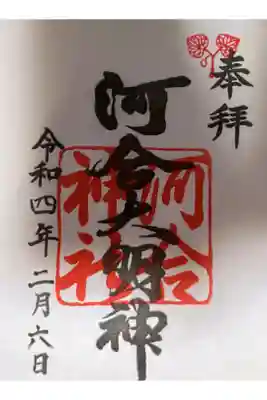 奉拝
河合大明神
河合
神社
令和四年二月六日